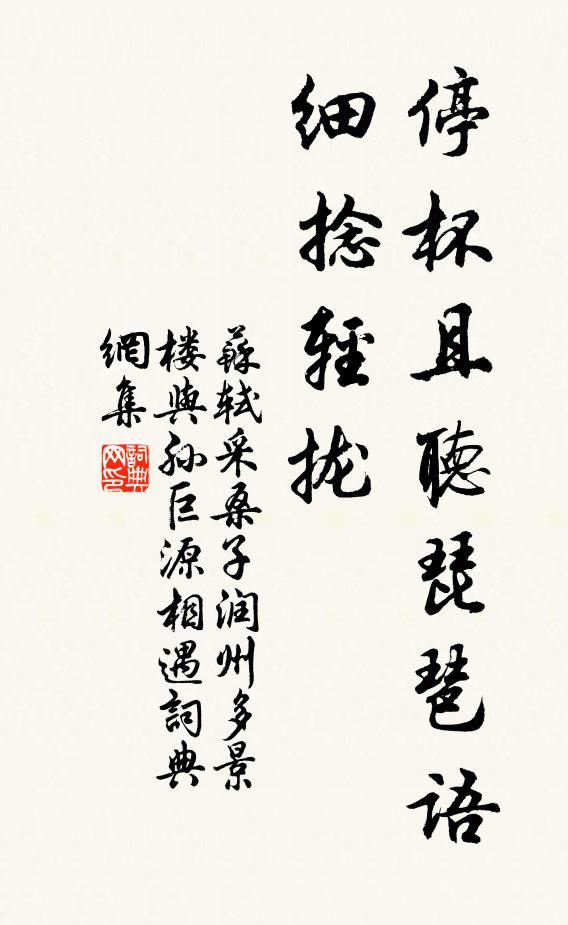 停杯且聽琵琶語
细捻輕拢
蘇轼采桑子润州多景
楼與孙巨源相遇詞典
網集
詞典
网印